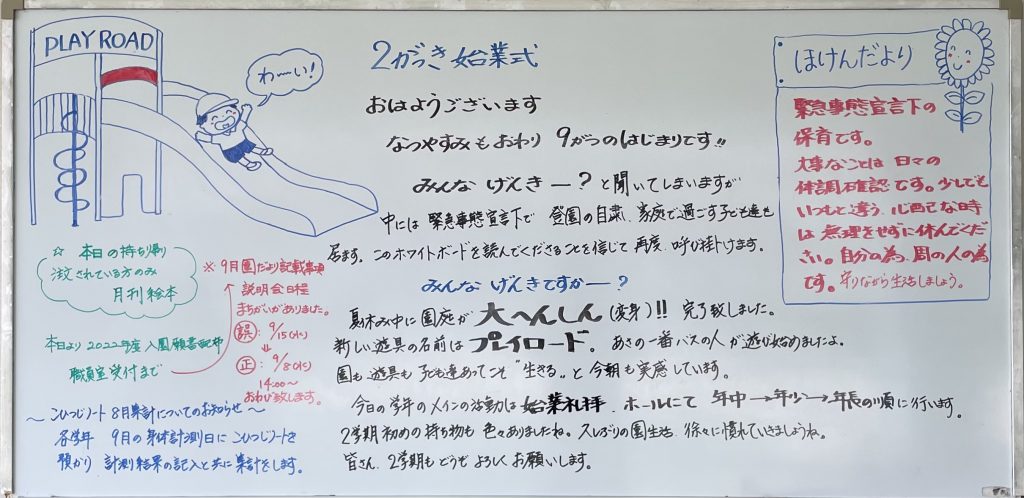 PLAY ROAD
わーい!
2がっき始業式
おはようございます
なつやすみもおわり 9がつのはじまりです!!
みんな げんきー?と聞いてしまいますが
中には 緊急事態宣言下で 登園の自粛、家庭で過ごす子ども達も
居ます。このホワイトボードを読んでくださることを信じて 再度、呼び掛けます。
みんな げんきですかー?
夏休み中に園庭が 大へんしん(変身)!! 完了致しました。
新しい遊具の名前は プレイロード。あさの一番バスの人が遊び始めましたよ。
園も遊具も 子ども達あってこそ"生きる"。と 今朝も実感しています。
今日の学年のメインの活動は 始業礼拝、ホールにて 年中→年少→年長の順に行います。
2学期初めの持ち物も 色々ありましたね。久しぶりの園生活、徐々に慣れていきましょうね。
皆さん、2学期もどうぞ よろしくお願いします。
ほけんだより
緊急事態宣言下の
保育です。
大事なことは 日々の
体調確認です。少しでも
いつもと違う、心配な時
は 無理をせずに休んでくだ
さい。自分の為、周の人の為
です。守りながら生活しましょう。
☆ 本日の持ち帰り
注文されている方のみ
月刊絵本
本日より 2022年度 入園願書配布中
職員室受付まで
※ 9月園だより記載事項
説明会日程
まちがいがありました。
誤: 9/15(水)
⇓
正: 9/8(水)
14:00~
おわび致します。
~ こひつじノート 8月集計についてのお知らせ ~
各学年 9月の身体計測日に こひつじノートを
預かり 計測結果の記入と共に集計をします。